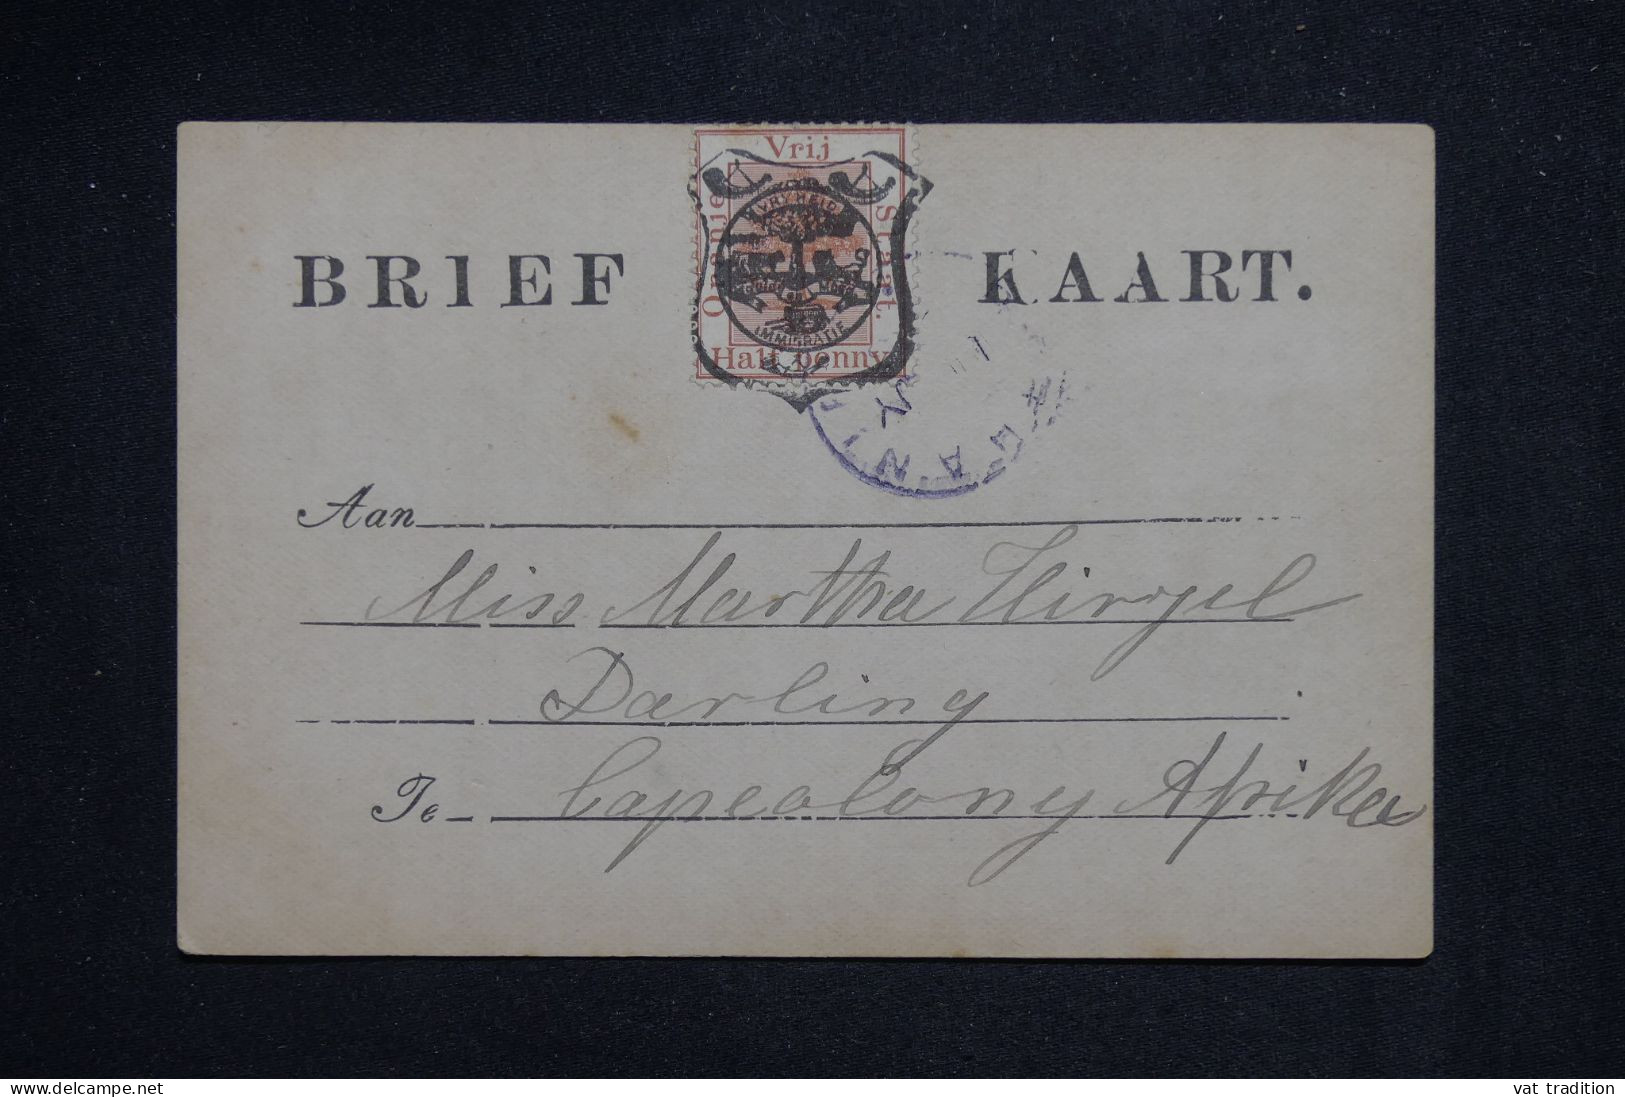 Vrij
Oranje
Staat.
VRYHEID
IMMIGRATIE
Half penny
BRIEF KAART.
Aan
Miss Martha Hirzel
Darling
Te Capecolony Afrika
vat tradition
delcampe.net